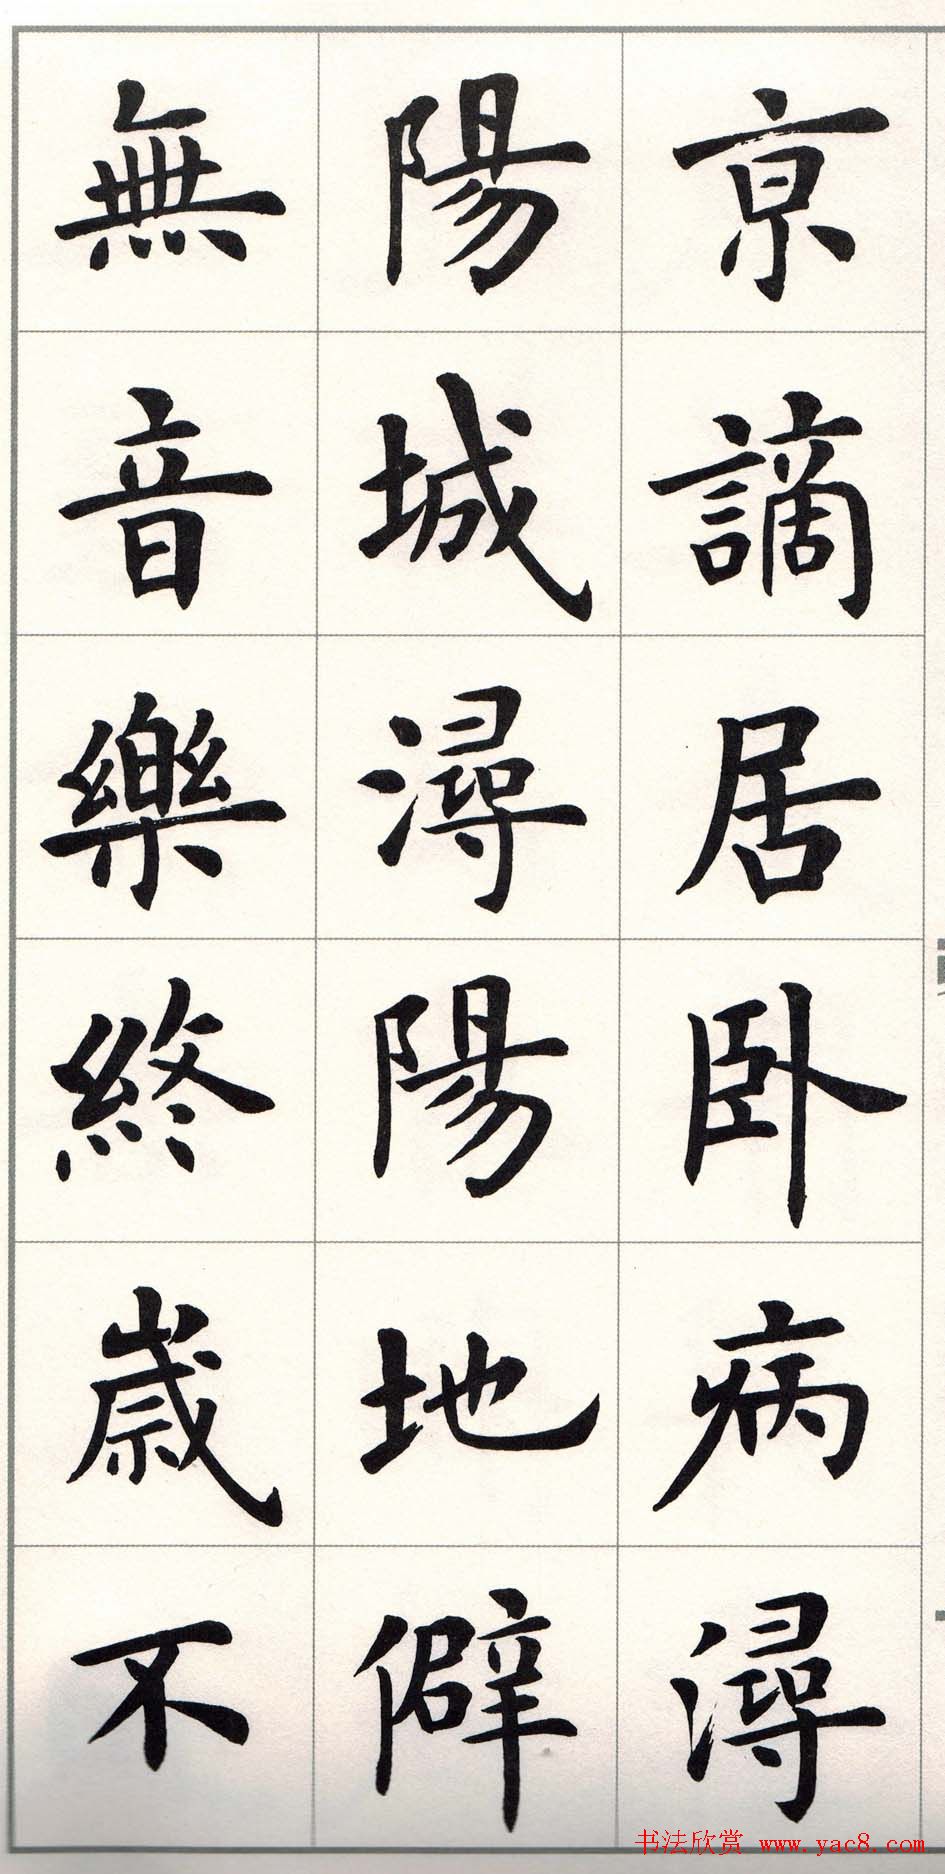 京謫居臥病潯
陽城潯陽地僻
無音樂終歲不
书法欣赏 www.yac8.com